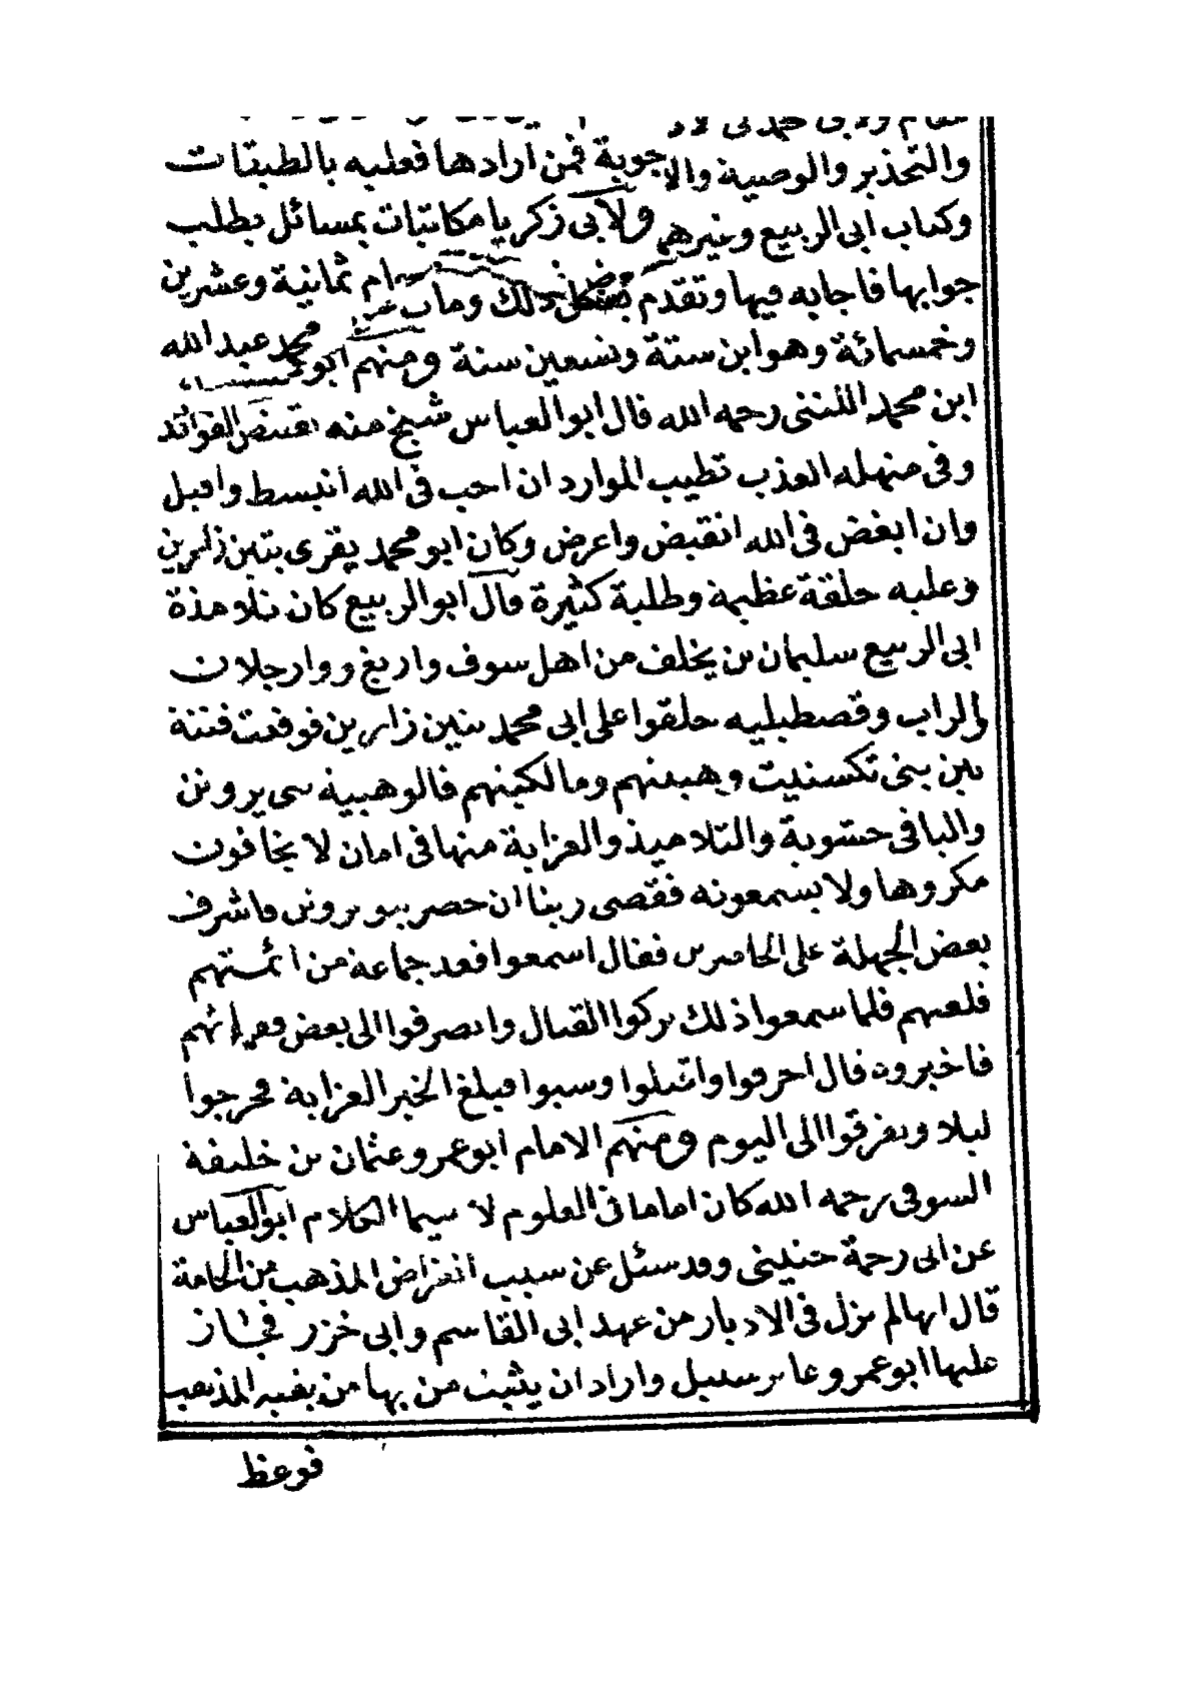 والتحذير والوصية والاجوبة فمن ارادها فعليه بالطبقات
وكتاب ابى الربيع وغيرهم ولابى زكريا مكاتبات بمسائل يطلب
جوابها فاجابه فيها وتقدم بعض ذلك ومات عام ثمانية وعشرين
وخمسمائة وهو ابن ستة وتسعين سنة ومنهم ابو محمد عبد الله
ابن محمد اللنثى رحمه الله قال ابو العباس شيخ منه تقتنص الفوائد
وفى منهله العذب تطيب الموارد ان احب فى الله انبسط واقبل
وان ابغض فى الله انقبض واعرض وكان ابو محمد يقرى بتين زارين
وعليه حلقة عظيمة وطلبة كثيرة قال ابو الربيع كان تلامذة
ابى الربيع سليمان بن يخلف من اهل سوف واريغ ووارجلان
والزاب وقصطيلية حلقوا على ابى محمد بتين زارين فوقعت فتنة
بين بنى تكسنيت وهبيتهم ومالكيتهم فالوهبية بنى يروتن
والباقى حشوية والتلاميذ والعزابة منها فى امان لا يخافون
مكروها ولا يسمعونه فقضى ربنا ان حصر بنو يروتن فاشرف
بعض الجهلة على الحاصرين فقال اسمعوا فعد جماعة من ائمتهم
فلعنهم فلما سمعوا ذلك تركوا القتال وانصرفوا الى بعض فقرائهم
فاخبروه قال احرقوا واقتلوا وسبوا فبلغ الخبر العزابة فخرجوا
ليلا وتفرقوا الى اليوم ومنهم الامام ابو عمرو عثمان بن خليفة
السوفى رحمه الله كان اماما فى العلوم لا سيما الكلام ابو العباس
عن ابى رحمة حنينى وقد سئل عن سبب انقراض المذهب من الحامة
قال انها لم تزل فى الادبار من عهد ابى القاسم وابى خزر فجاز
عليها ابو عمرو عابر سبيل واراد ان يثبت من بها من بقية المذهب
فوعظ